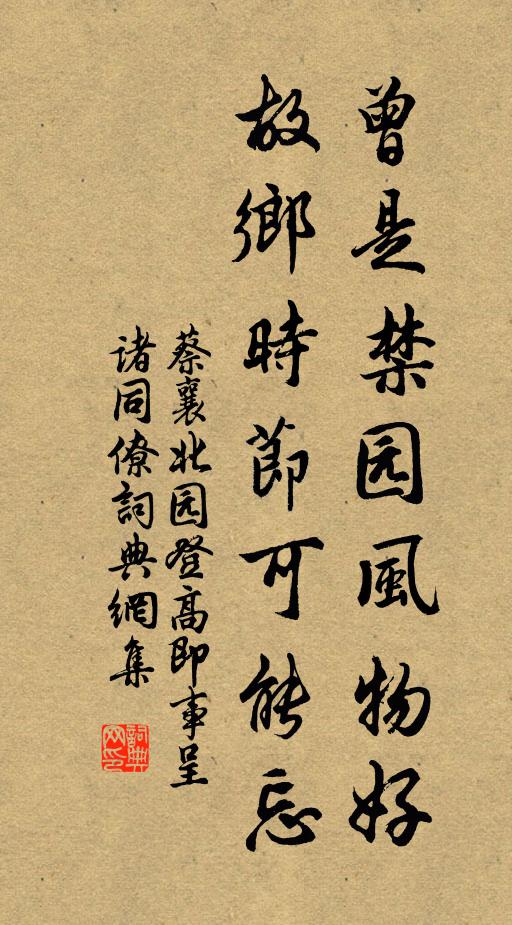 曾是禁园風物好
故鄉時節可能忘
蔡襄北园登高即事呈
诸同僚詞典網集
詞典网印